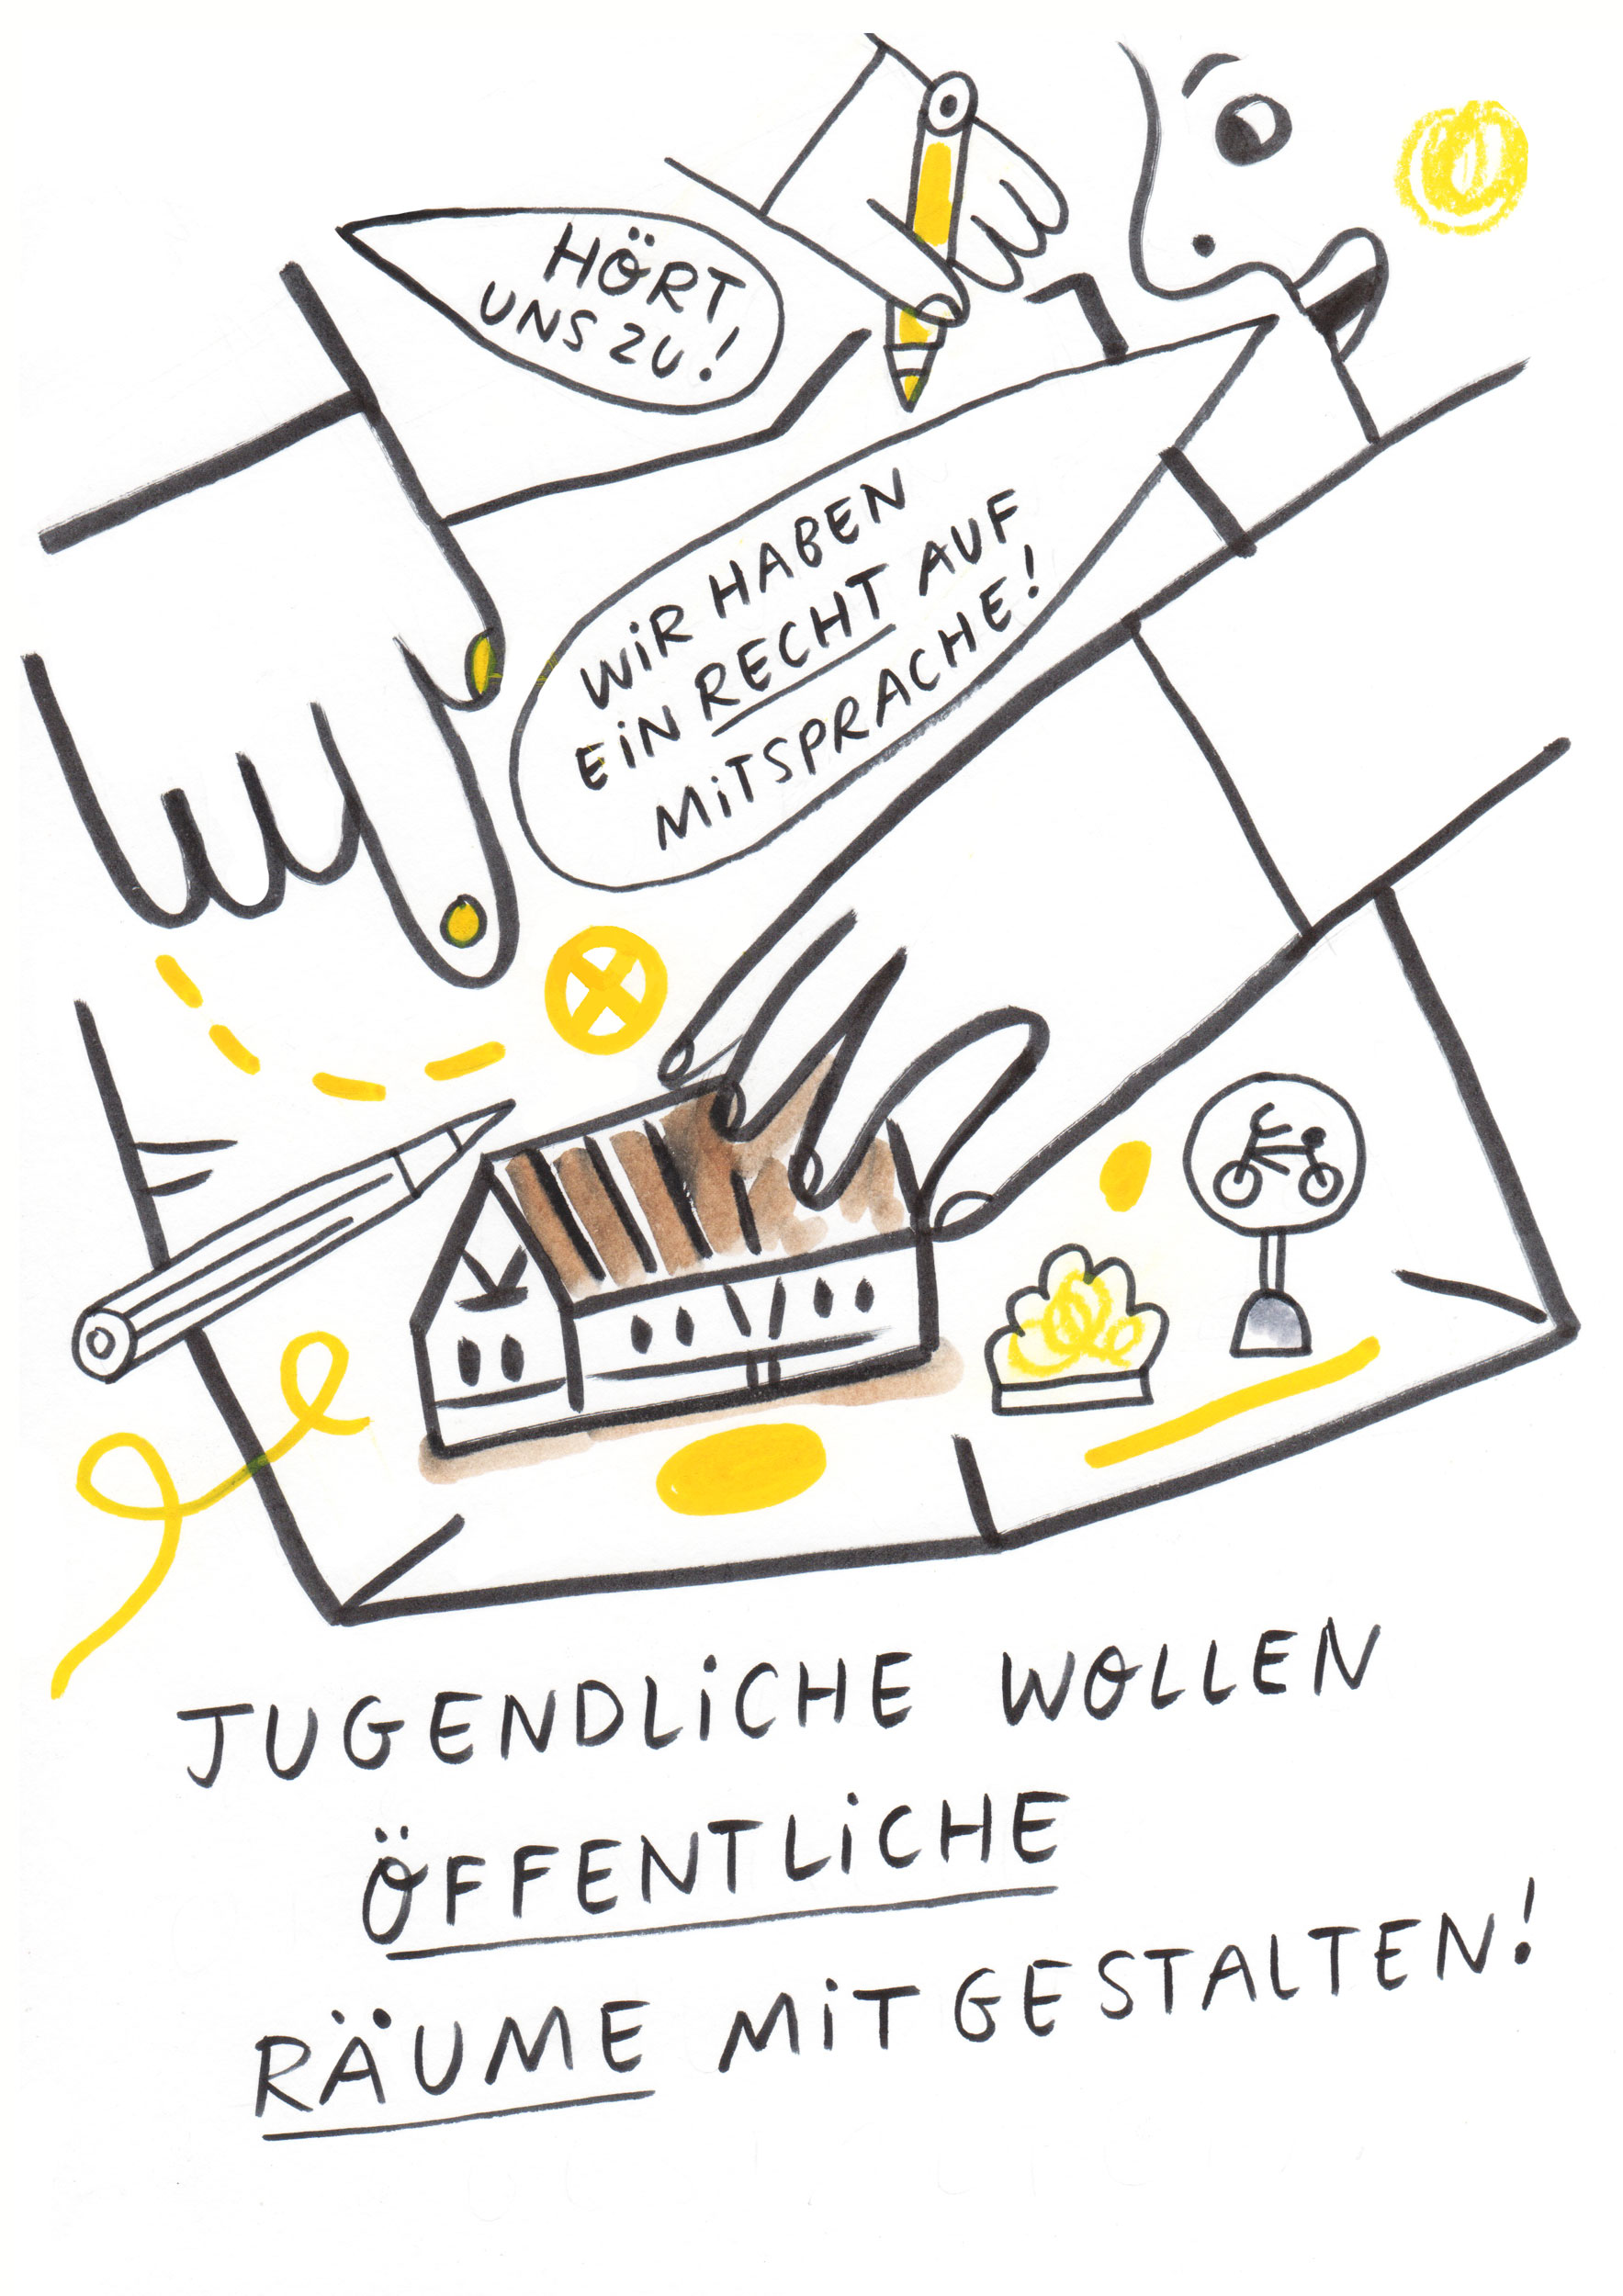 HÖRT
UNS ZU!
WiR HABEN
EiN RECHT AUF
MiTSPRACHE!
JUGENDLiCHE WOLLEN
ÖFFENTLiCHE
RÄUME MiTGESTALTEN!